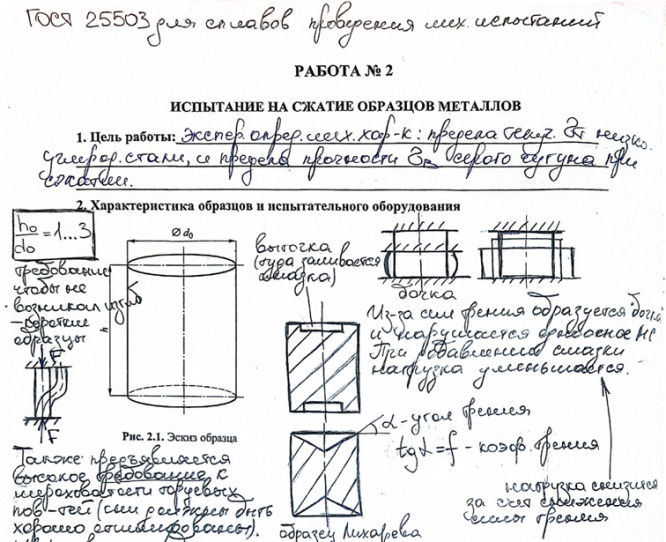 ГОСТ 25503 для сплавов проверения мех. испытаний
РАБОТА № 2
ИСПЫТАНИЕ НА СЖАТИЕ ОБРАЗЦОВ МЕТАЛЛОВ
1. Цель работы: Экспер. опред. мех. хар-к: предела текуч. σт низко-
углерод. стали, и предела прочности σв серого чугуна при
сжатии.
2. Характеристика образцов и испытательного оборудования
h₀/d₀ = 1...3
требование
чтобы не
возникал изгиб
короткие
образцы
F
F
Ø d₀
h
Рис. 2.1. Эскиз образца
Также предъявляется
высокое требование к
шероховатости торцевых
пов-тей (они должны быть
хорошо отшлифованы).
выточка
(туда заливается
смазка)
бочка
Из-за сил трения образуется бочка
и нарушается одноосное НС
При добавлении смазки
нагрузка уменьшается.
α - угол трения
tgα = f - коэф. трения
нагрузка снизится
за счет снижения
силы трения
образец Лихарева